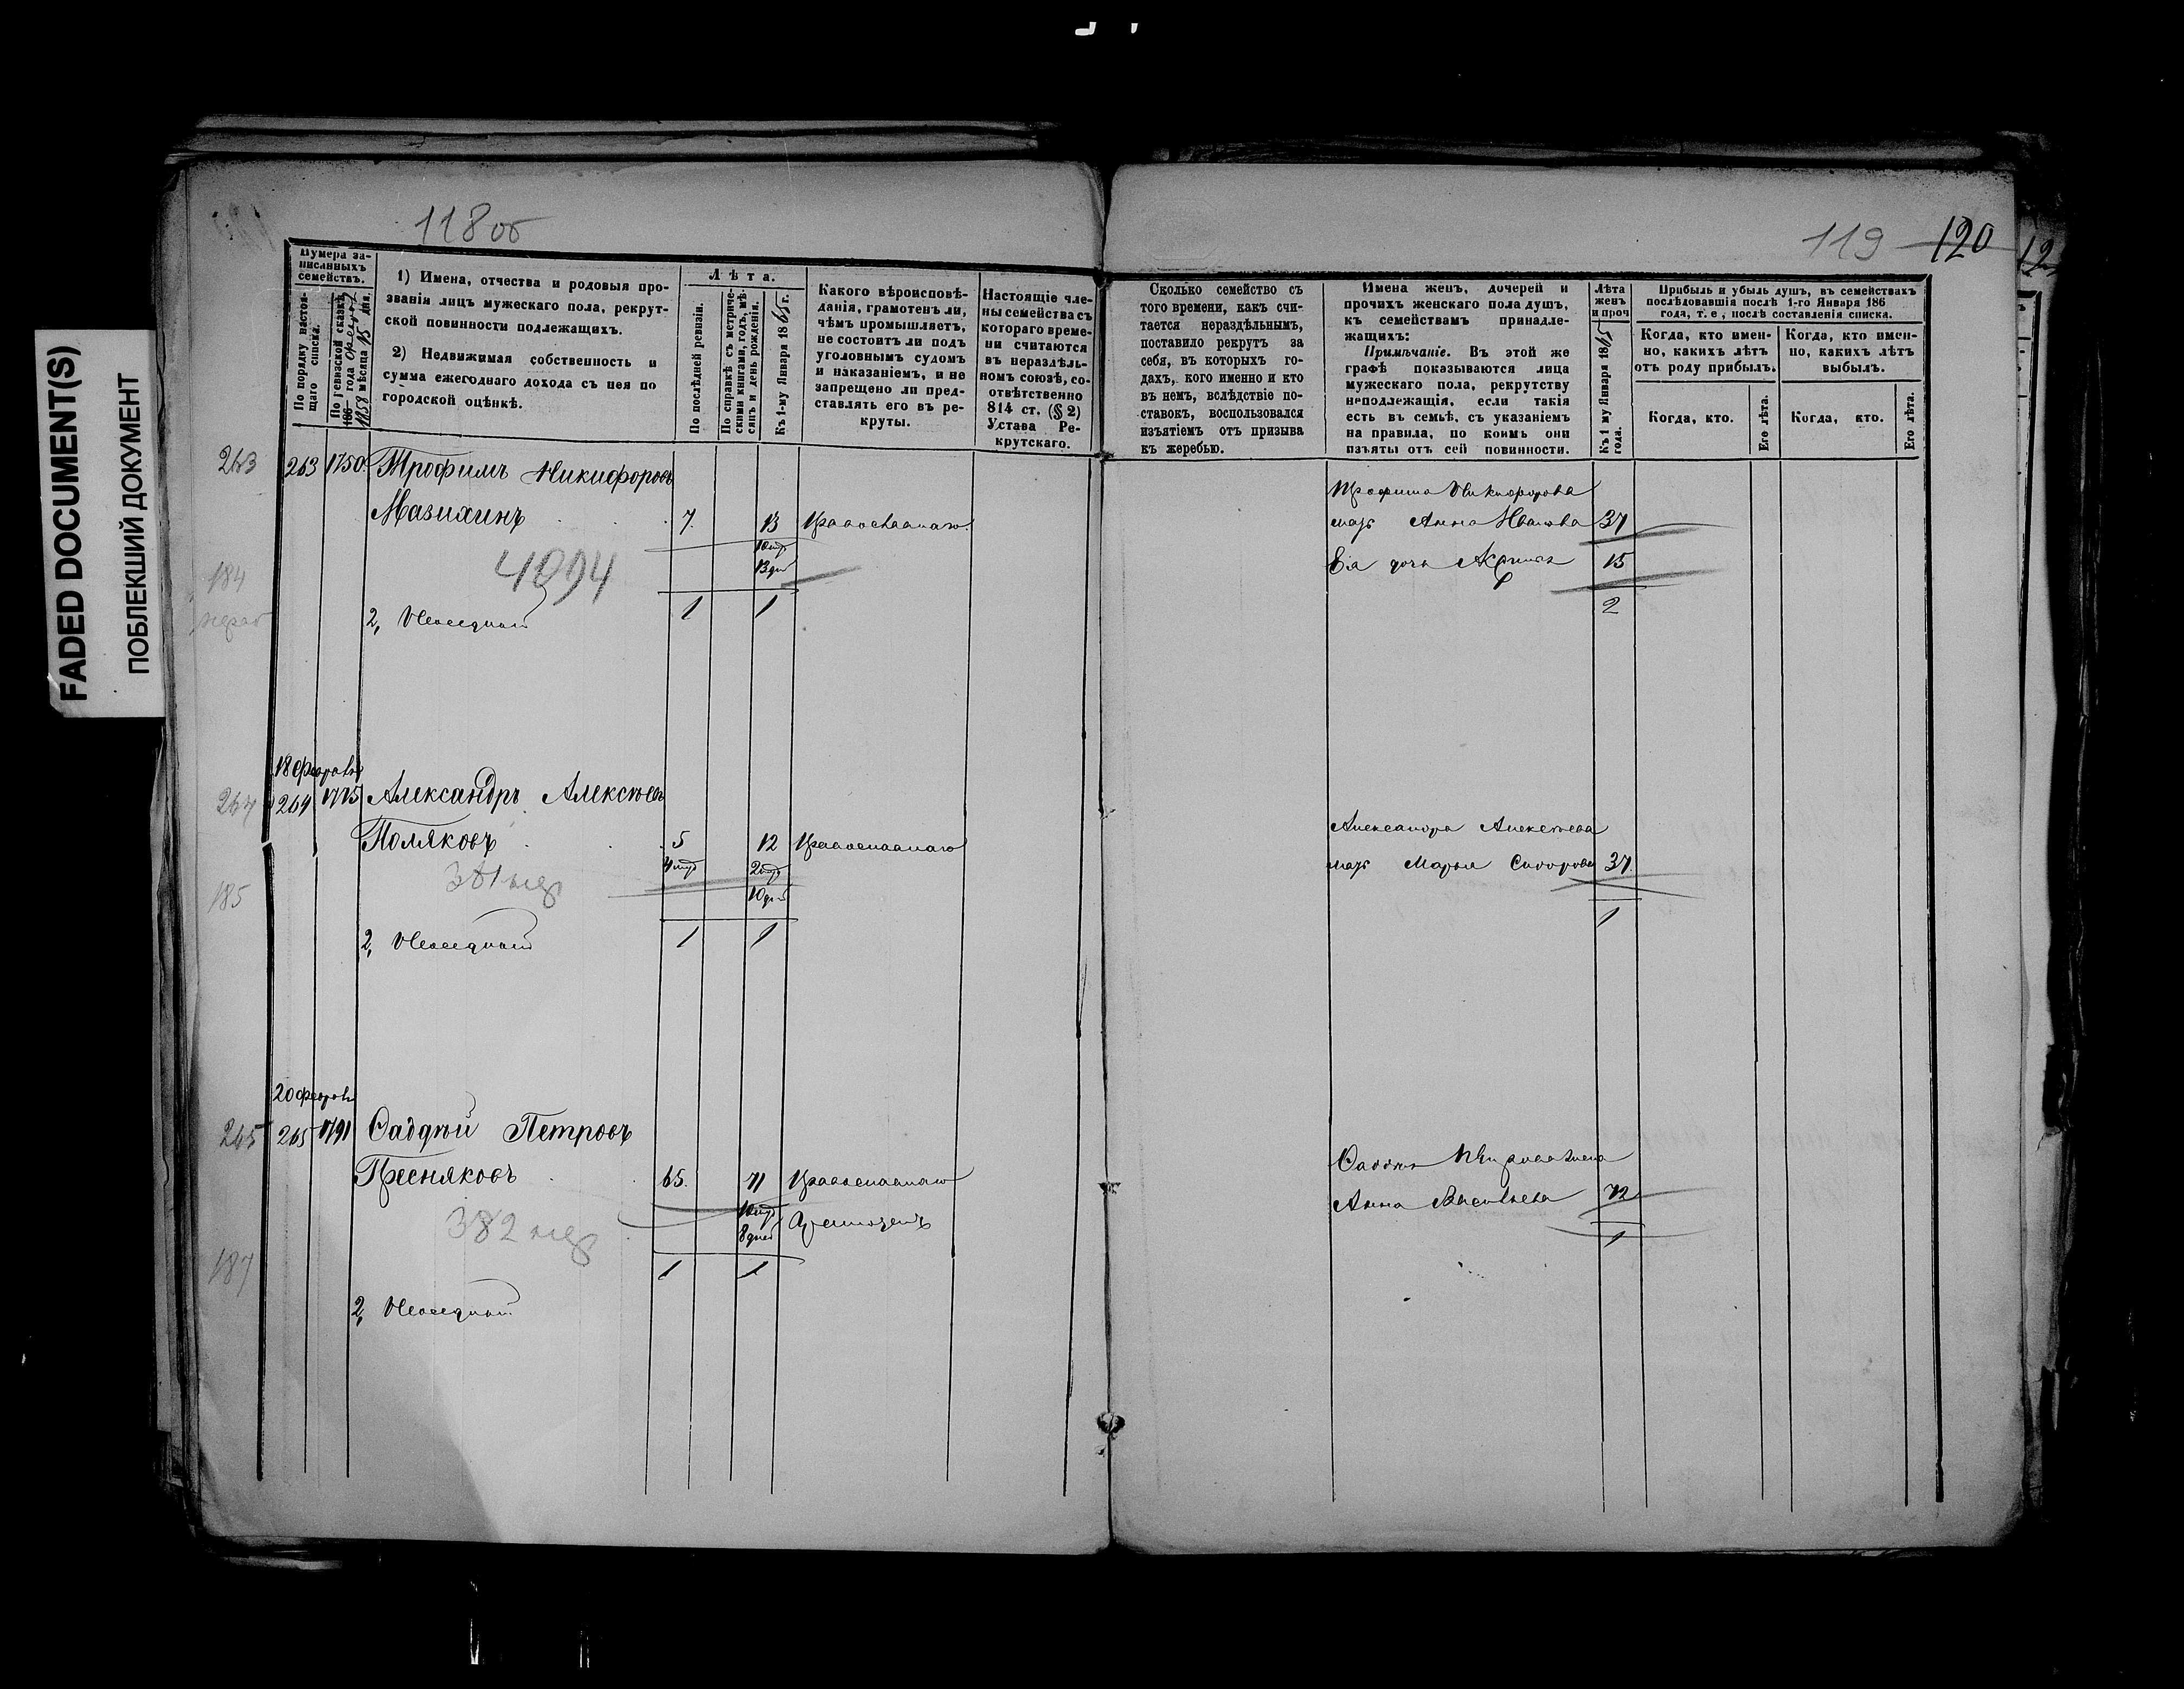 FADED DOCUMENT(S)
ПОБЛЕКШИЙ ДОКУМЕНТ
118 об
119 120
Нумера за-
писанныхъ
семействъ.
По порядку настоя-
щаго списка.
По ревизской сказкѣ
186 года
1858 мѣсяца 15 дня.
1) Имена, отчества и родовыя про-
званія лицъ мужескаго пола, рекрут-
ской повинности подлежащихъ.
2) Недвижимая собственность и
сумма ежегоднаго дохода съ нея по
городской оцѣнкѣ.
Лѣта.
По послѣдней ревизіи.
По справкѣ съ метриче-
скими книгами, годъ, мѣ-
сяцъ и день рожденія.
Къ 1-му Января 1865 г.
Какого вѣроисповѣ-
данія, грамотенъ ли,
чѣмъ промышляетъ,
не состоитъ ли подъ
уголовнымъ судомъ
и наказаніемъ, и не
запрещено ли пред-
ставлять его въ ре-
круты.
Настоящіе чле-
ны семейства съ
котораго време-
ни считаются
въ нераздѣль-
номъ союзѣ, со-
отвѣтственно
814 ст. (§ 2)
Устава Ре-
крутскаго.
Сколько семейство съ
того времени, какъ счи-
тается нераздѣльнымъ,
поставило рекрутъ за
себя, въ которыхъ го-
дахъ, кого именно и кто
въ немъ, вслѣдствіе по-
ставокъ, воспользовался
изъятіемъ отъ призыва
къ жеребью.
Имена женъ, дочерей и
прочихъ женскаго пола душъ,
къ семействамъ принадле-
жащихъ:
Примѣчаніе. Въ этой же
графѣ показываются лица
мужескаго пола, рекрутству
неподлежащія, если такія
есть въ семьѣ, съ указаніемъ
на правила, по коимъ они
изъяты отъ сей повинности.
Лѣта
женъ
и проч
Къ 1 му Января 1865
года.
Прибыль и убыль душъ, въ семействахъ
послѣдовавшія послѣ 1-го Января 186
года, т. е., послѣ составленія списка.
Когда, кто имен-
но, какихъ лѣтъ
отъ роду прибылъ.
Когда, кто имен-
но, какихъ лѣтъ
выбылъ.
Когда, кто.
Его лѣта.
Когда, кто.
Его лѣта.
263 263 1750 Трофимъ Никифоровъ
Мазихинъ 7 13 Православнаго
13 дн
184
2, Неосѣдлой 1 1
Трофима Никифорова
мать Анна Иванова 37
Ея дочь 15
2
18 Февраля
264 264 1775 Александръ Алексѣевъ
Поляковъ 5 12 Православнаго
10 дн
185
2, Неосѣдлой 1 1
Александра Алексѣева
мать Марья Сидорова 37
1
20 Февраля
265 265 1791 Фаддѣй Петровъ
Пресняковъ 65 71 Православнаго
8 дней
382
187
1 1
2, Неосѣдлой
Анна Васильева 72
1